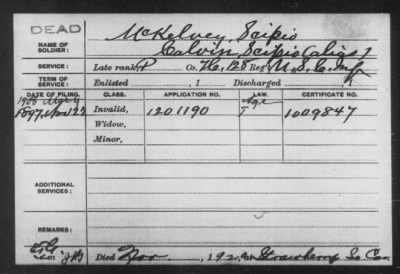 DEAD
NAME OF SOLDIER: McKelvey, Scipio
Calvin, Scipio (alias)
SERVICE: Late rank P Co. H, 128 Reg't U. S. C. Inf
TERM OF SERVICE: Enlisted , 1 Discharged , 1
DATE OF FILING. CLASS. APPLICATION NO. LAW. CERTIFICATE NO.
1908 Age
1897, Nov 22 Invalid, 1201190 1009847
Widow,
Minor,
ADDITIONAL SERVICES:
REMARKS:
Died Nov , 192 Strawberry So. Car.